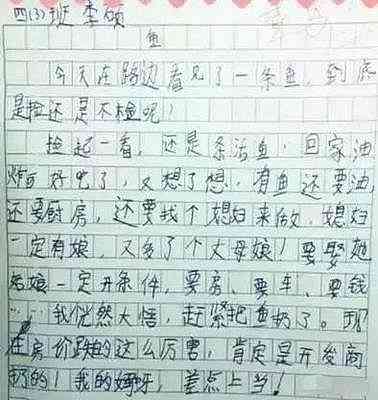 四(3)班 李硕
鱼
今天在路边看见了一条鱼,到底
是捡还是不检呢!
捡起一看,还是条活鱼,回家油
炸可好吃了,又想了想,有鱼还要油,
还要厨房,还要找个媳妇来做,媳妇
一定有娘,又多了个丈母娘!要娶她
后娘一定开条件,要房、要车、要钱
……我恍然大悟,赶紧把鱼扔了。现
在房价跌的这么厉害,肯定是开发商
扔的!我的妈呀,差点上当!